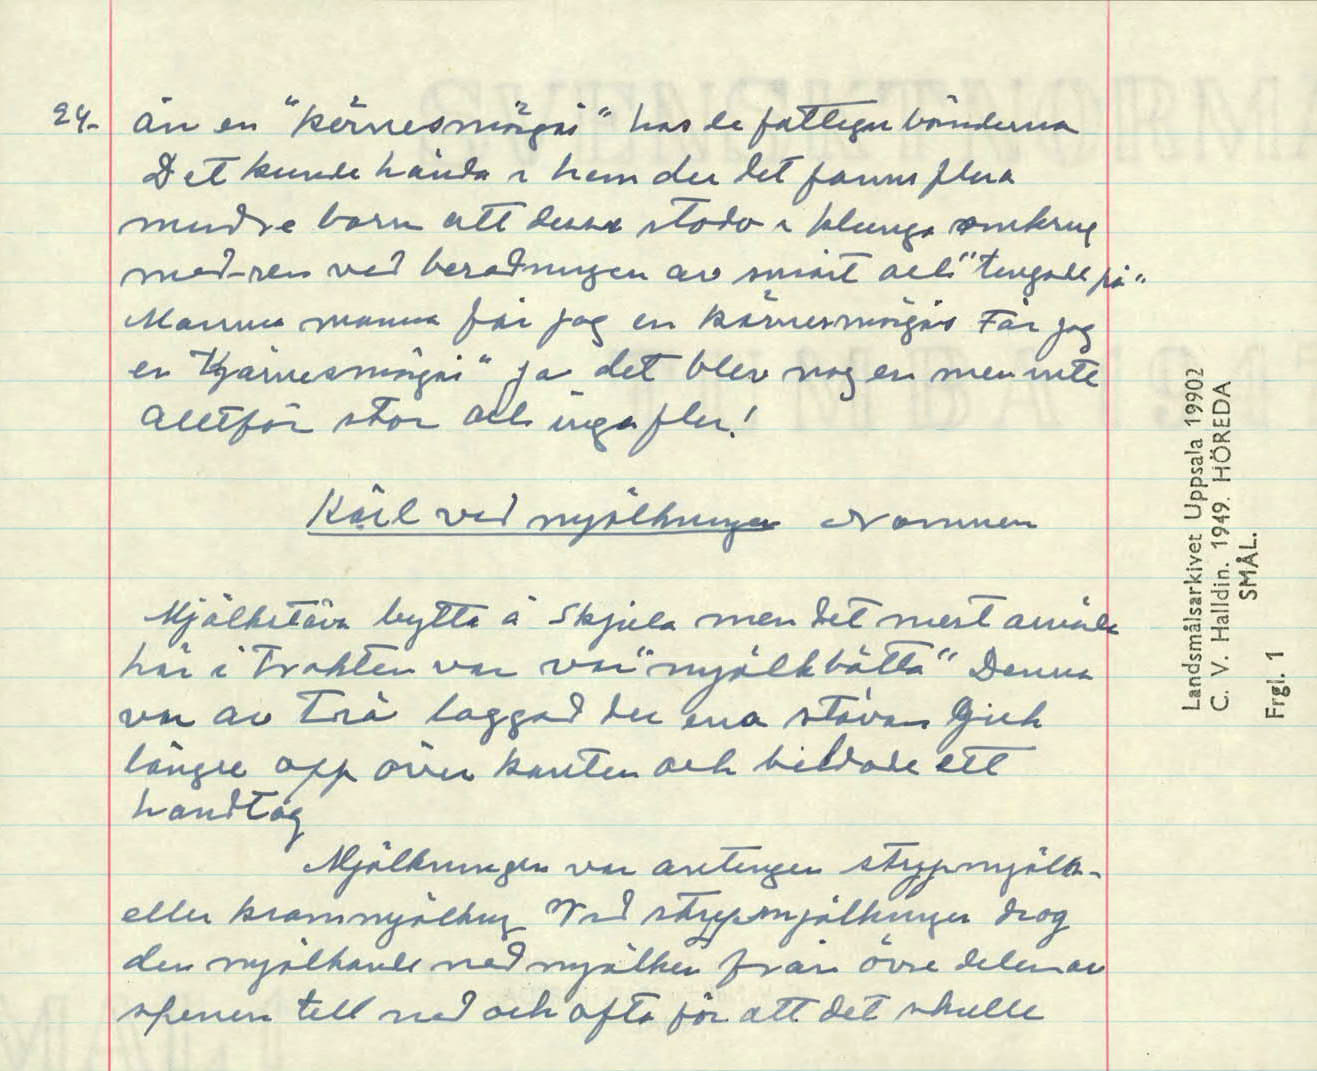 24- än en "kärnesmörgås" hos de fattigare bönderna
Det kunde hända i hem der det fanns flera
mindre barn att dessa stodo i klunga omkring
mod-ren vid beredningen av smört och "tingade på"
Mamma mamma får jag en kärnesmörgås Får jag
en "Kjärnesmörgås" ja det blev nog en men inte
alltför stor och inga fler!
Kärl vid mjölkningen Namnen
Mjölkstäva bytta å Skjula men det mest använda
här i trakten var var "mjölkbötta" Denna
var av Trä laggad der ena stävan Gick
längre opp över kanten och bildade ett
handtag
Mjölkningen var antingen strypmjölk-
eller krammjölkng Vid strypmjölkningen drog
den mjölkande ned mjölken från övre delen av
spenen till ned och ofta för att det skulle
Landsmålsarkivet Uppsala 19902
C. V. Halldin. 1949. HÖREDA
SMÅL.
Frgl. 1